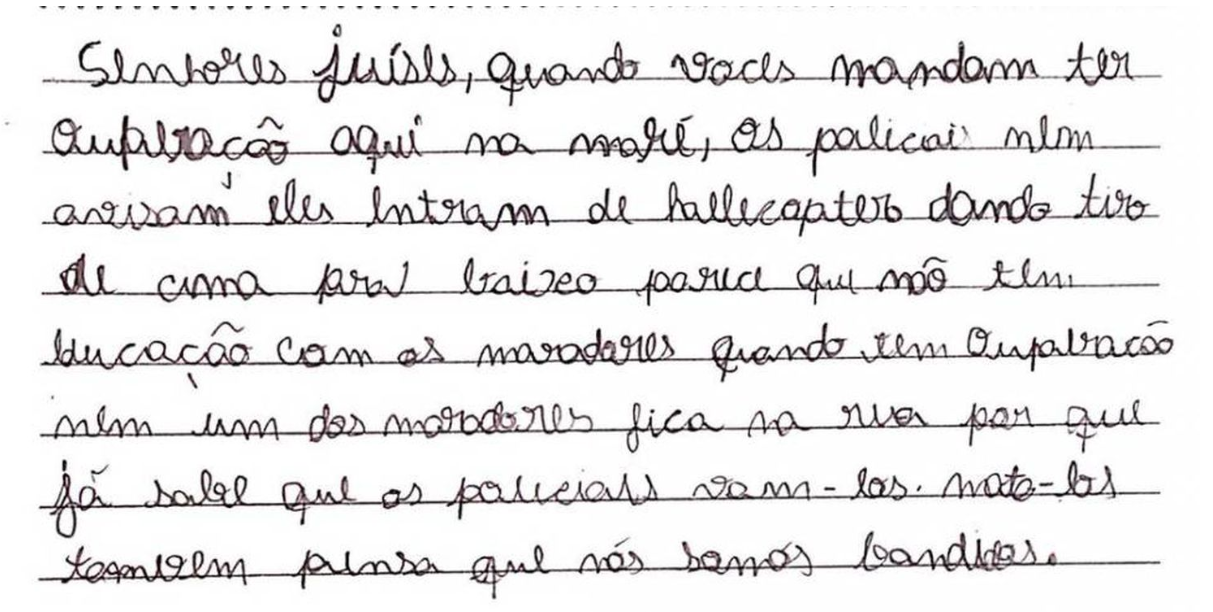 Senhores juíses, quando voces mandam ter
Oupabracão aqui na maré, os policai nem
avisam eles entram de hallecapitero dando tiro
de cima pra baixo parece que nõo tem
educação com os moradores quando tem Oupabracõo
nem um dos moradores fica na rua por que
já sabe que os policiais vam-los. mata-los
tambem pensa que nós somos bandidos.